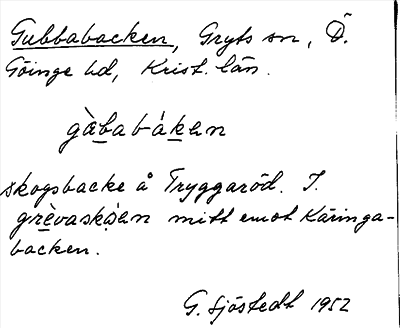 Gubbabacken, Gryts sn, Ö.
Göinge hd, Krist. län.
gàbabákan
skogsbacke å Tryggaröd. I.
grèvaskóan mitt emot Käringa-
backen.
G. Sjöstedt 1952